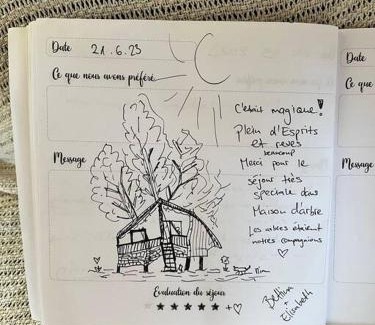 Date 21.6.23
Ce que nous avons préféré
C'était magique!
Plein d'Esprits
et reves
beaucoup
Merci pour le
séjour très
speciale dans
Maison d'arbre
Les arbres étaient
notres compagnions
Message
Bettina
+
Elisabeth
Evaluation du séjour
Date
Ce que
Messa